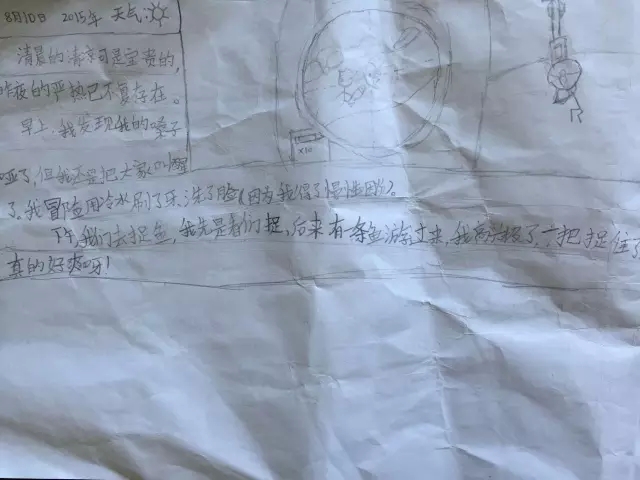 8月10日 2015年 天气:
清晨的清凉可是宝贵的,
昨夜的严热已不复存在。
早上,我发现我的嗓子
哑了,但我还是把大家叫醒
了。我冒险用冷水刷了牙,洗了脸(因为我得了慢性咽炎)。
下午,我们去捉鱼,我先是看们捉,后来有一条鱼游过来,我高兴极了,一把捉住了
真的好爽呀!
x10